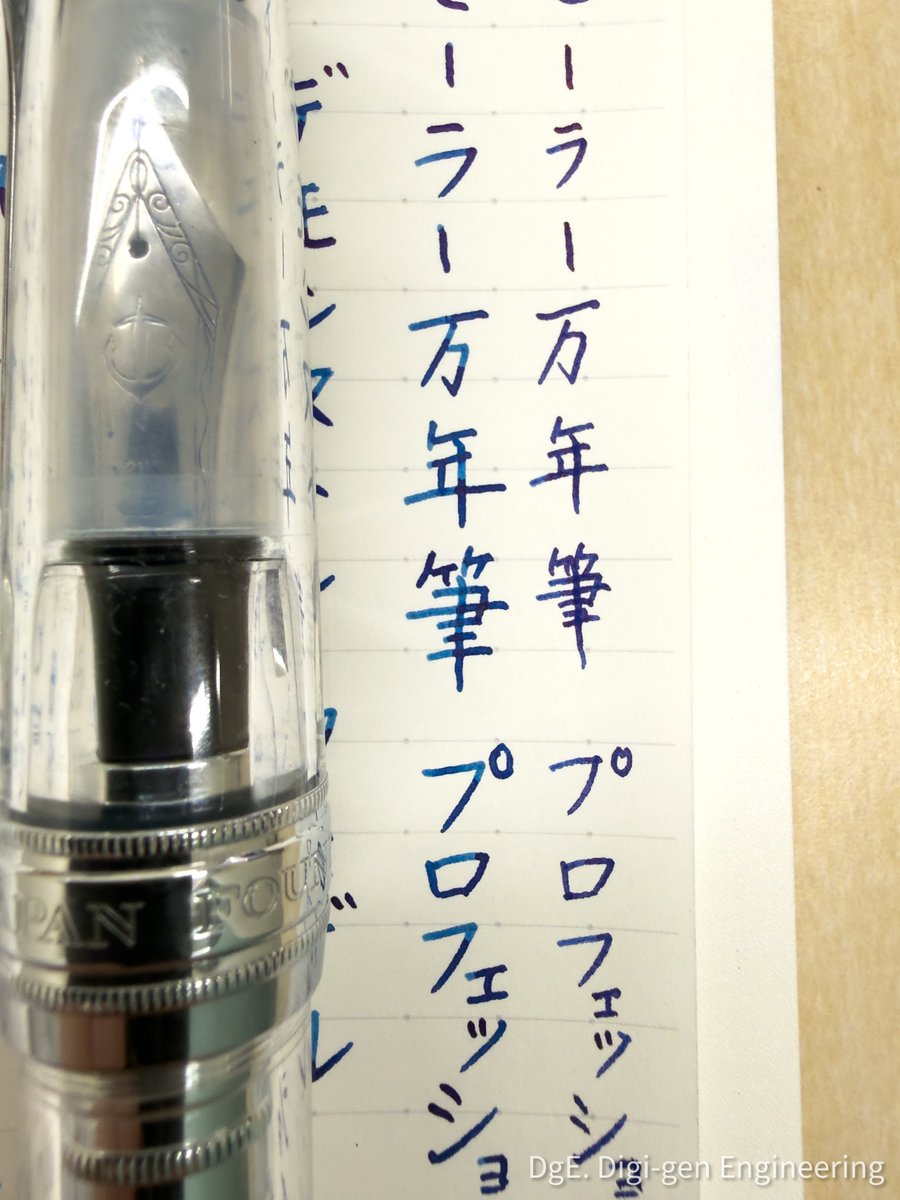 ーラー万年筆 プロフェッショ
ーラー万年筆 プロフェッショ
デモンスト
PAN FOUN
DgE. Digi-gen Engineering